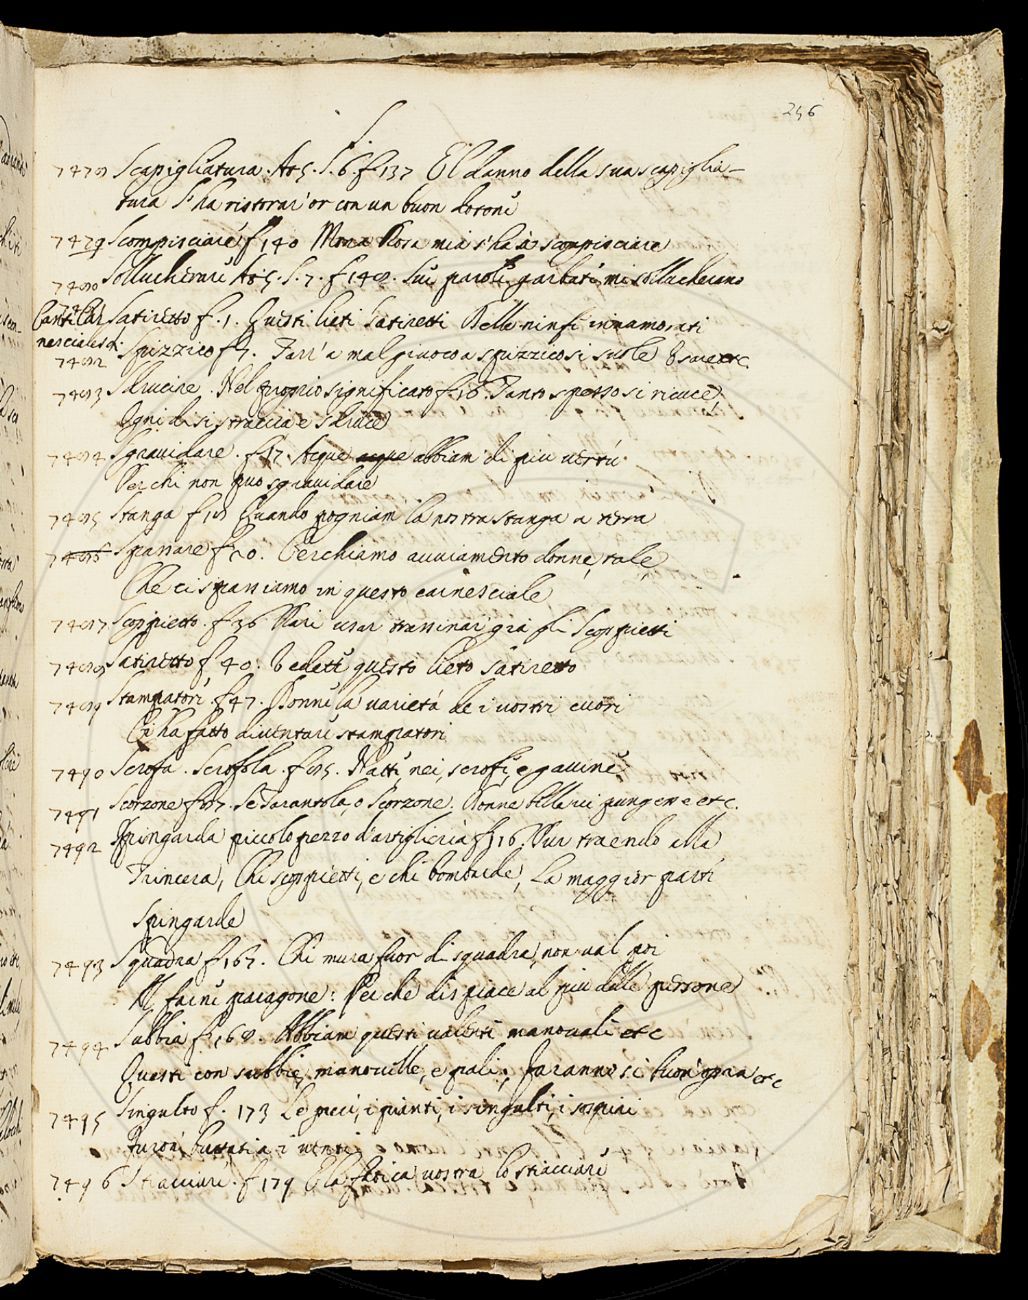 256
S.
7478 Scapigliatura. At 5. S. 6. f 137 E'l danno della sua scapiglia-
tura S'ha ristorar or con un buon
7479 Scompisciare f 140 Mona Rosa mia s'ha a scompisciare
7480 Sollucherare At 5. S. 7. f 148. Sue parole garbate mi sollucherano
7481
Canti Car Satiretto f. 1. Questi lieti Satiretti Delle ninfe innamorati
nescialeschi
7482 Spizzico f 7. Farr'a mal giuoco a spizzico si suole etc.
7483 Sdrucire. Nel proprio significato f. 16. Tanto spesso si ricuce
Ogni dì si straccia e sdruce
7484 Sgravidare. f 17. Acque acque abbiam di piu vertù
Per chi non puo sgravidare
7485 Stanga f 18 Quando pogniam la nostra stanga a terra
7486 Spassare f 20. Cerchiamo avviamento donne, tale
Che ci spassiamo in questo carnesciale
7487 Scoppietto. f 36 Vari usar trassinar gia gli Scoppietti
7488 Satiretto f 40. Vedete questo lieto Satiretto
7489 Stampatori f 47. Donne la varietà de i vostri cuori
Ci ha fatto diventare stampatori
7490 Scrofa. Scrofola. f 85. Natte, nei, scrofe, e gavine
7491 Scorzone f 87. Se Tarantola, o Scorzone. Donne belle vi pungere etc.
7492 Spingarda piccolo pezzo d'artiglieria f 116. Pur traendo alla
Trincera, Chi scoppietti, e chi bombarde, La maggior parte
Spingarde
7493 Squadra f 167. Chi mura fuor di squadra, non val poi
A farne paragone: Perche dispiace al piu delle persone
7494 Subbia f. 168. Abbiam questi valenti manovali etc
Questi con subbie, manovelle, e pali, Faranno si buon'opra etc
7495 Singulto f. 173 Le preci, i pianti, i singulti, i sospiri
Furon buttati a i venti
7496 Stracciare. f 179 E la fatica nostra lo stracciare